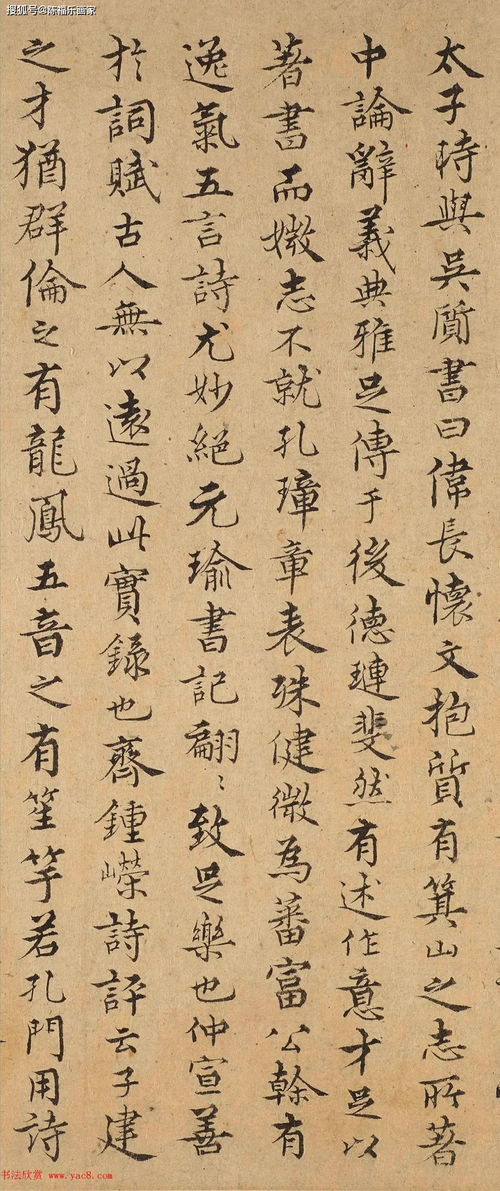 搜狐号@陈福乐画家
太子時與吳質書曰偉長懷文抱質有箕山之志所著
中論辭義典雅足傳于後德璉斐然有述作意才足以
著書而媺志不就孔璋章表殊健微為蕃富公幹有
逸氣五言詩尤妙絕元瑜書記翩〻致足樂也仲宣善
扵詞賦古人無以遠過此實錄也齊鍾嶸詩評云子建
之才猶群倫之有龍鳳五音之有笙竽若孔門用詩
书法欣赏 www.yac8.com